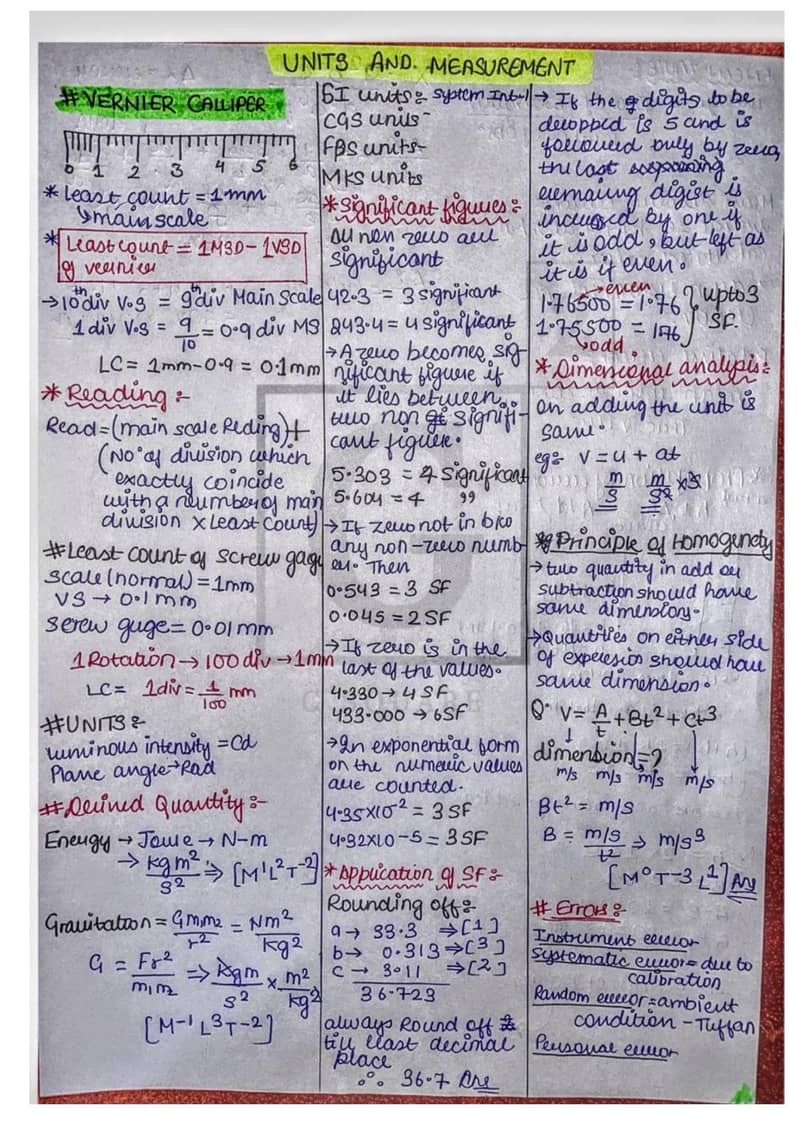 UNITS AND. MEASUREMENT
# VERNIER CALLIPER
0 1 2 3 4 5 6
* Least count = 1mm
↳ main scale
* Least count = 1MSD - 1VSD
of vernier
→ 10th div V.S = 9th div Main Scale
1 div V.S = 9/10 = 0.9 div MS
LC = 1mm-0.9 = 0.1mm
* Reading :-
Read = (main scale Reding) +
(No. of division which
exactly coincide
with a number of main
division x Least Count)
# Least count of screw gage
scale (normal) = 1mm
VS → 0.1 mm
Screw guge = 0.01 mm
1 Rotation → 100 div → 1mm
LC = 1div = 1/100 mm
# UNITS :-
luminous intensity = Cd
Plane angle → Rad
# Derived Quantity :-
Energy → Joule → N-m
→ kg m²/S² ⇒ [M¹L²T⁻²]
Gravitation = Gm₁m₂/r² = Nm²/kg²
G = Fr²/m₁m₂ ⇒ kgm/s² × m²/kg²
[M⁻¹L³T⁻²]
SI units :- System Int-l
CGS units -
FPS units -
MKS units
* Significant figures :-
All non zero are
significant
42.3 = 3 significant
243.4 = 4 significant
→ A zero becomes sig-
nificant figure if
it lies between
two non signifi-
cant figure.
5.303 = 4 Significant
5.604 = 4 "
→ If zero not in b/w
any non-zero numb-
er. Then
0.543 = 3 SF
0.045 = 2 SF
→ If zero is in the
last of the values.
4.330 → 4 SF
433.000 → 6SF
→ In exponential form
on the numeric values
are counted.
4.35×10⁻² = 3 SF
4.32×10-5 = 3 SF
* Application of SF :-
Rounding off :-
a → 33.3 ⇒ [1]
b → 0.313 ⇒ [3]
c → 3.11 ⇒ [2]
36.723
always Round off
till last decimal
place
∴ 36.7 Ans
→ If the digits to be
dropped is 5 and is
followed only by zero,
the last
remaining digist is
increased by one if
it is odd, but left as
it is if even.
→ even
1.76500 = 1.76
1.75500 = 176
upto 3
SF.
↳ odd
* Dimensional analysis :-
on adding the unit is
same.
eg:- v = u + at
m/s m/s² × s
* Principle of Homogenety
→ two quantity in add or
subtraction should have
same dimension.
→ Quantities on either side
of expression should have
same dimension.
Q. V = A/t + Bt² + Ct³
dimension = ?
m/s m/s m/s m/s
Bt² = m/s
B = m/s/t² ⇒ m/s³
[M⁰T-3 L¹] Ans
# Errors :-
Instrument error
Systematic error = due to
calibration
Random error = ambient
condition - Tuffan
Personal error